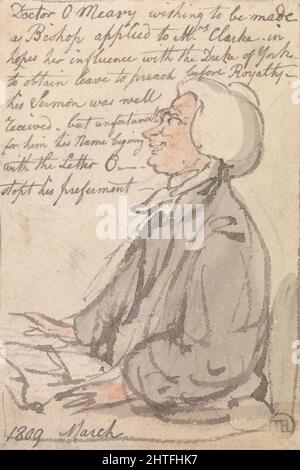 Doctor O Meary wishing to be made
a Bishop applied to Mrs Clarke - in
hopes her influence with the Duke of York
to obtain leave to preach before Royalty -
his Sermon was well
received - but unfortunately
for him his Name begang
with the Letter O -
stopt his preferment
1809 March
TH
alamy
Image ID: 2HTFHK7
www.alamy.com